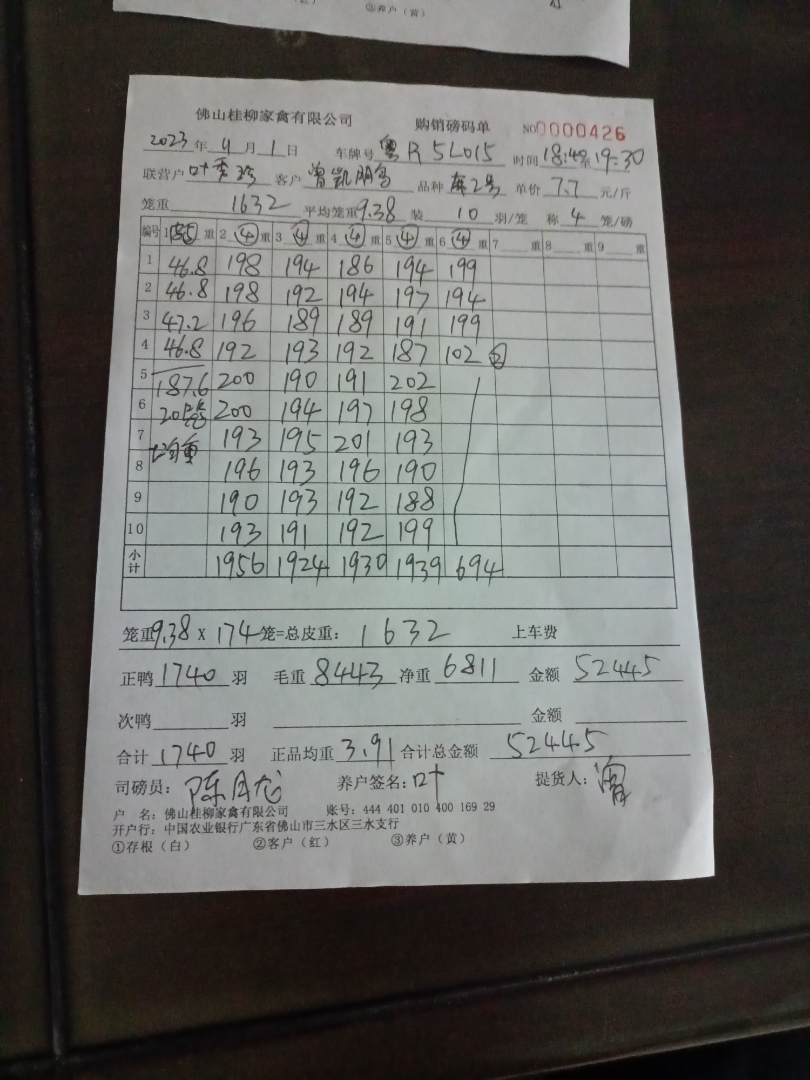 ③养户（黄）
佛山桂柳家禽有限公司 购销磅码单 NO 0000426
2023年4月1日 车牌号 粤R5L015 时间 18:40至19:30
联营户 叶秀珍 客户 曾凯朋 品种 单价 7.7 元/斤
笼重 1632 平均笼重 9.38 装 10 羽/笼 称 4 笼/磅
编号 1 重 2 ④ 重 3 ④ 重 4 ④ 重 5 ④ 重 6 ④ 重 7 重 8 重 9 重
1 46.8 198 194 186 194 199
2 46.8 198 192 194 197 194
3 47.2 196 189 189 191 199
4 46.8 192 193 192 187 102 ②
5 187.6 200 190 191 202
6 20 200 194 197 198
7 均重 193 195 201 193
8 196 193 196 190
9 190 193 192 188
10 193 191 192 199
小计 1956 1924 1930 1939 694
笼重 9.38 X 174 笼=总皮重： 1632 上车费
正鸭 1740 羽 毛重 8443 净重 6811 金额 52445
次鸭 羽 金额
合计 1740 羽 正品均重 3.91 合计总金额 52445
司磅员： 养户签名：叶 提货人：曾
户 名：佛山桂柳家禽有限公司 账号：444 401 010 400 169 29
开户行：中国农业银行广东省佛山市三水区三水支行
①存根（白） ②客户（红） ③养户（黄）